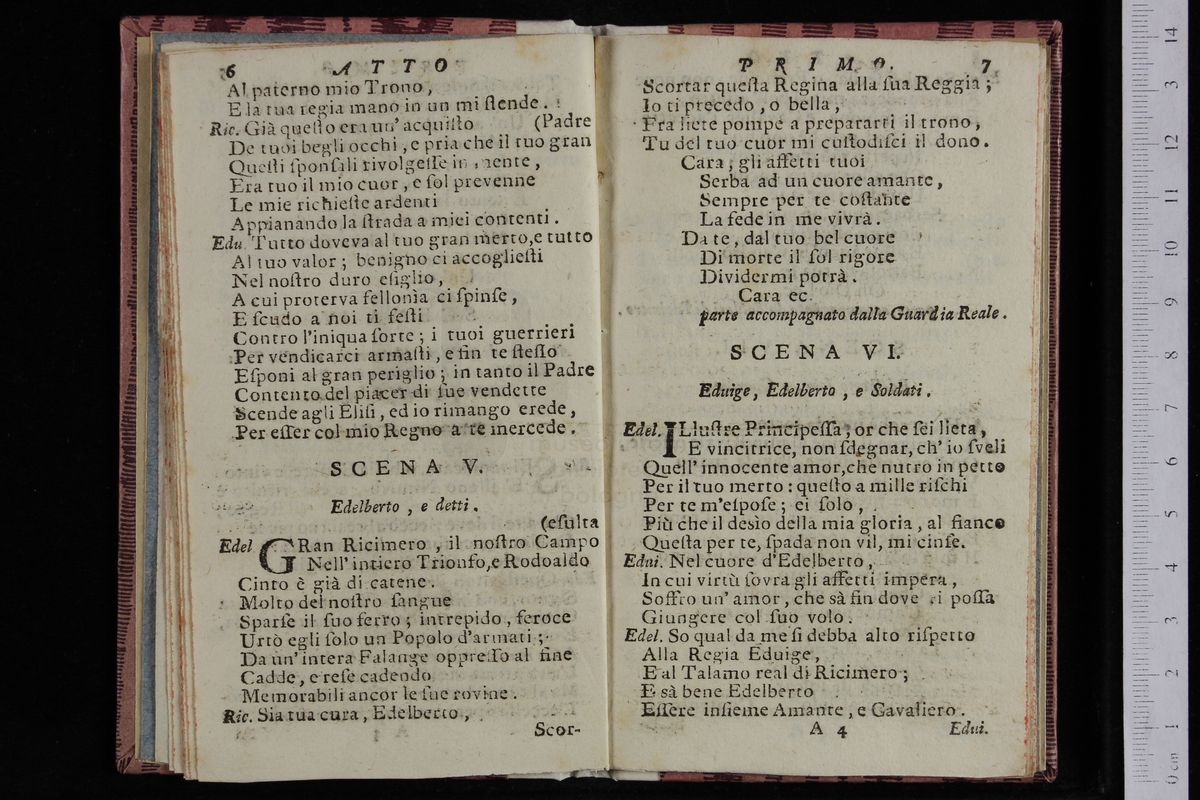 6 ATTO
Al paterno mio Trono,
E la tua regia mano in un mi ſtende.
Ric. Già queſto era un' acquiſto (Padre
De tuoi begli occhi, e pria che il tuo gran
Queſti ſponſali rivolgeſſe in mente,
Era tuo il mio cuor, e ſol prevenne
Le mie richieſte ardenti
Appianando la ſtrada a miei contenti.
Edu. Tutto doveva al tuo gran merto, e tutto
Al tuo valor; benigno ci accoglieſti
Nel noſtro duro eſiglio,
A cui proterva fellonìa ci ſpinſe,
E ſcudo a noi ti feſti
Contro l'iniqua ſorte; i tuoi guerrieri
Per vendicarci armaſti, e fin te ſteſſo
Eſponi al gran periglio; in tanto il Padre
Contento del piacer di ſue vendette
Scende agli Eliſi, ed io rimango erede,
Per eſſer col mio Regno a te mercede.
SCENA V.
Edelberto, e detti.
(eſulta
Edel GRan Ricimero, il noſtro Campo
Nell' intiero Trionfo, e Rodoaldo
Cinto è già di catene.
Molto del noſtro ſangue
Sparſe il ſuo ferro; intrepido, feroce
Urtò egli ſolo un Popolo d'armati;
Da un' intera Falange oppreſſo al fine
Cadde, e reſe cadendo
Memorabili ancor le ſue rovine.
Ric. Sia tua cura, Edelberto,
Scor-
PRIMO. 7
Scortar queſta Regina alla ſua Reggia;
Io ti precedo, o bella,
Fra liete pompe a prepararti il trono,
Tu del tuo cuor mi cuſtodiſci il dono.
Cara; gli affetti tuoi
Serba ad un cuore amante,
Sempre per te coſtante
La fede in me vivrà.
Da te, dal tuo bel cuore
Di morte il ſol rigore
Dividermi potrà.
Cara ec.
parte accompagnato dalla Guardia Reale.
SCENA VI.
Eduige, Edelberto, e Soldati.
Edel. ILluſtre Principeſſa; or che ſei lieta,
E vincitrice, non ſdegnar, ch' io ſveli
Quell' innocente amor, che nutro in petto
Per il tuo merto: queſto a mille riſchi
Per te m'eſpoſe; ei ſolo,
Più che il desìo della mia gloria, al fianco
Queſta per te, ſpada non vil, mi cinſe.
Edui. Nel cuore d'Edelberto,
In cui virtù ſovra gli affetti impera,
Soffro un' amor, che sà fin dove ei poſſa
Giungere col ſuo volo.
Edel. So qual da me ſi debba alto riſpetto
Alla Regia Eduige,
E al Talamo real di Ricimero;
E sà bene Edelberto
Eſſere inſieme Amante, e Cavaliero.
A 4 Edui.
0 cm 1 2 3 4 5 6 7 8 9 10 11 12 13 14